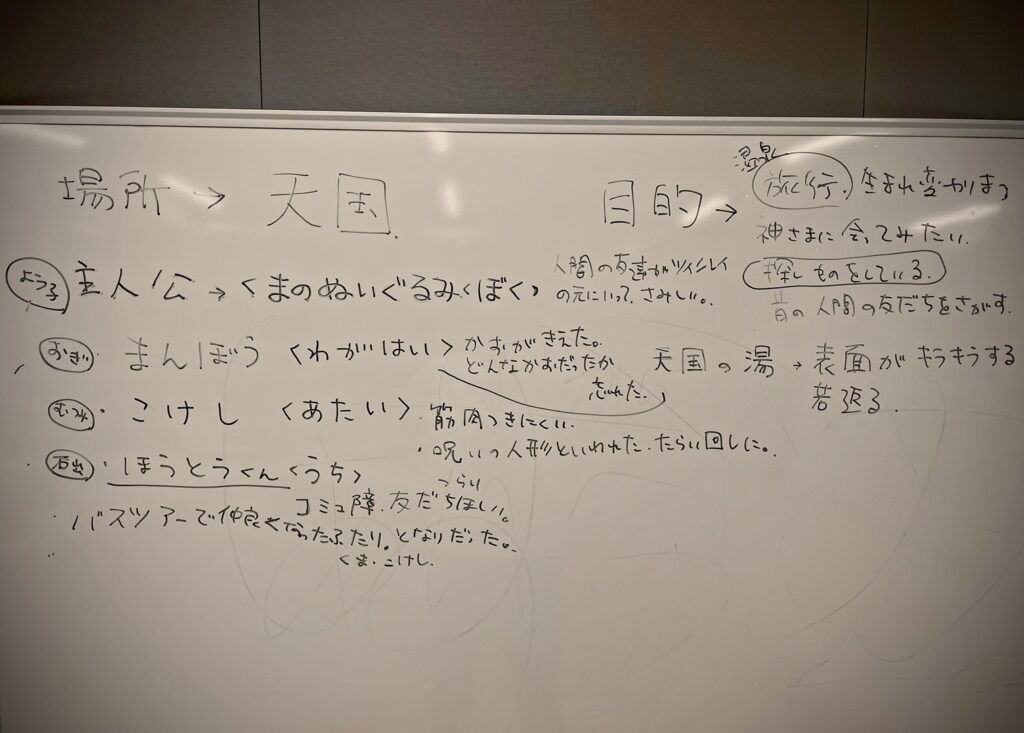 場所 → 天国.
目的 → 旅行. 生まれ変わりまつ
温泉
神さまに会ってみたい.
探しものをしている.
昔の人間の友だちをさがす.
よう子 主人公 → くまのぬいぐるみ〈ぼく〉
人間の友達がツインレイ
の元にいって、さみしい。
おぎ・まんぼう〈わがはい〉
かおがきえた。
どんなかおだったか
忘れた.
天国の湯 → 表面がキラキラする
若返る.
・こけし〈あたい〉
・筋肉つきにくい.
・呪いの人形といわれた. たらい回しに。
石出・ほうとうくん〈うち〉
つらい
コミュ障. 友だちほしい。
・バスツアーで仲良くなったふたり。となりだった。
くま・こけし.